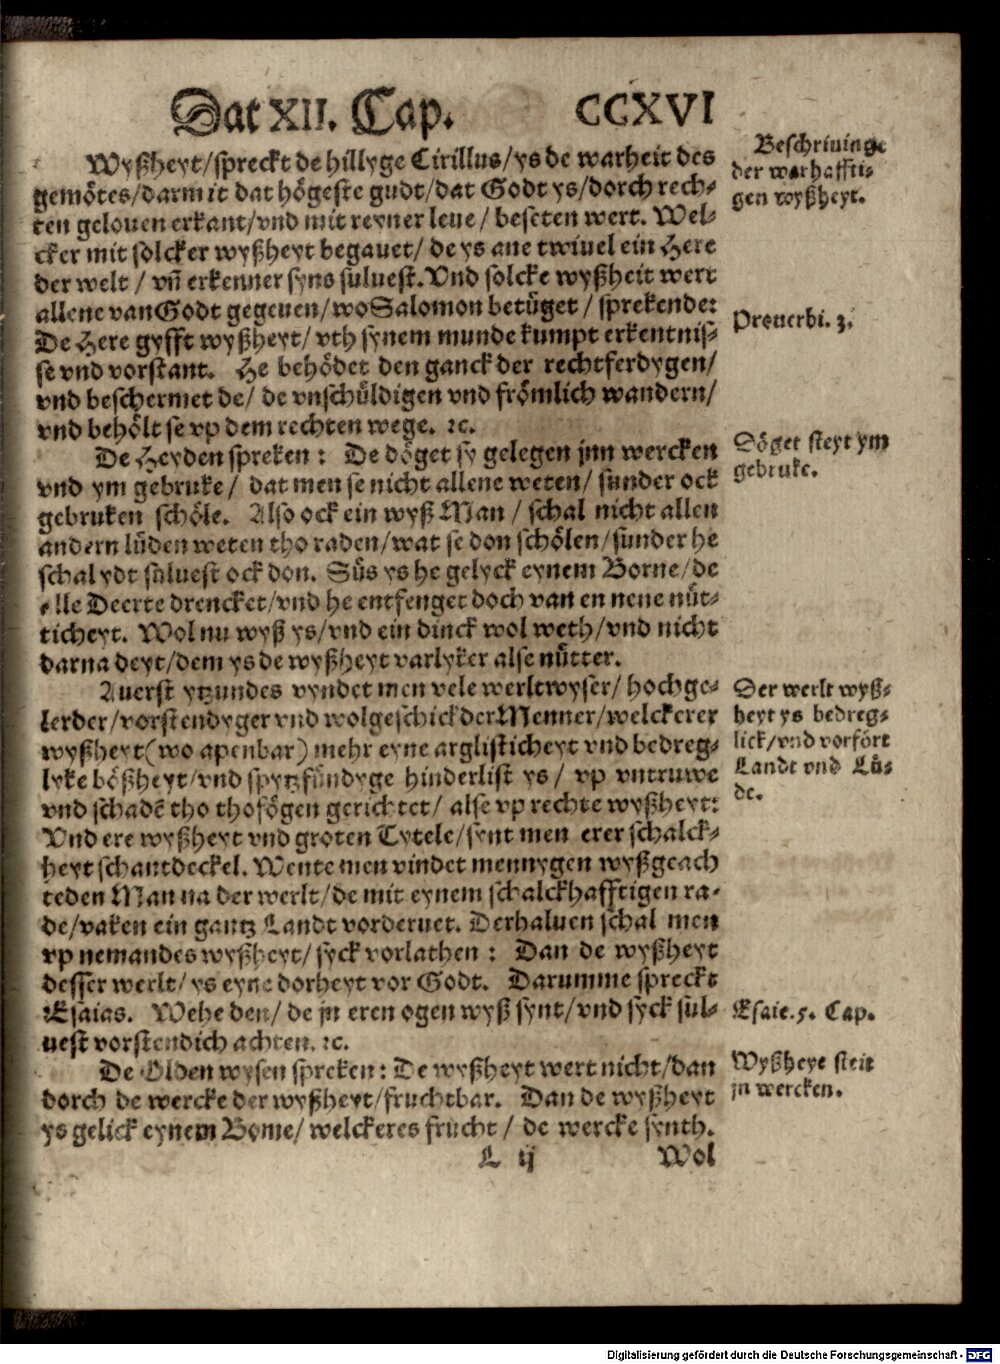 Dat XII. Cap. CCXVI
Wyßheyt/spreckt de hillyge Cirillus/ys de warheit des
gemötes/darmit dat högeste gudt/dat Godt ys/dorch rech-
ten gelouen erkant/vnd mit reyner leue/ beseten wert. Wel-
cker mit solcker wyßheyt begauet/ de ys ane twiuel ein Here
der welt / vñ erkenner syns suluest. Vnd solcke wyßheit wert
allene van Godt gegeuen/wo Salomon betüget / sprekende:
De Here gyfft wyßheyt/ vth synem munde kumpt erkentnis-
se vnd vorstant. He behödet den ganck der rechtferdygen/
vnd beschermet de/ de vnschüldigen vnd frömlich wandern/
vnd behölt se vp dem rechten wege. ꝛc.
De Heyden spreken : De döget sy gelegen jnn wercken
vnd ym gebruke/ dat men se nicht allene weten/ sunder ock
gebruken schöle. Also ock ein wyß Man / schal nicht allen
andern lüden weten tho raden/wat se don schölen/sunder he
schal ydt suluest ock don. Süs ys he gelyck eynem Borne/de
alle Deerte drencket/vnd he entfenget doch van en nene nüt-
ticheyt. Wol nu wyß ys/vnd ein dinck wol weth/vnd nicht
darna deyt/dem ys de wyßheyt varlyker alse nütter.
Auerst ytzundes vyndet men vele werltwyser/ hochge-
lerder/vorstendyger vnd wolgeschickder Menner/welckerer
wyßheyt(wo apenbar) mehr eyne arglisticheyt vnd bedreg-
lyke bößheyt/vnd spytzfündyge hinderlist ys/ vp vntruwe
vnd schadē tho thofögen gerichtet/ alse vp rechte wyßheyt:
Vnd ere wyßheyt vnd groten Tytele/synt men erer schalck-
heyt schantdeckel. Wente men vindet mennygen wyßgeach
teden Man na der werlt/de mit eynem schalckhafftigen ra-
de/vaken ein gantz Landt vorderuet. Derhaluen schal men
vp nemandes wyßheyt/ syck vorlathen : Dan de wyßheyt
desser werlt/ys eyne dorheyt vor Godt. Darumme spreckt
Esaias. Wehe den/ de jn eren ogen wyß synt/vnd syck sül-
uest vorstendich achten. ꝛc.
De Olden wysen spreken : De wyßheyt wert nicht/dan
dorch de wercke der wyßheyt/fruchtbar. Dan de wyßheyt
ys gelick eynem Bome/ welckeres frücht / de wercke synth.
L ij Wol
Beschriuinge
der warhaffti-
gen wyßheyt.
Prouerbi. 3.
Döget steyt ym
gebruke.
Der werlt wyß-
heyt ys bedreg-
lick/vnd vorfört
Landt vnd Lü-
de.
Esaie. 5. Cap.
Wyßheye steit
jn wercken.
Digitalisierung gefördert durch die Deutsche Forschungsgemeinschaft - DFG